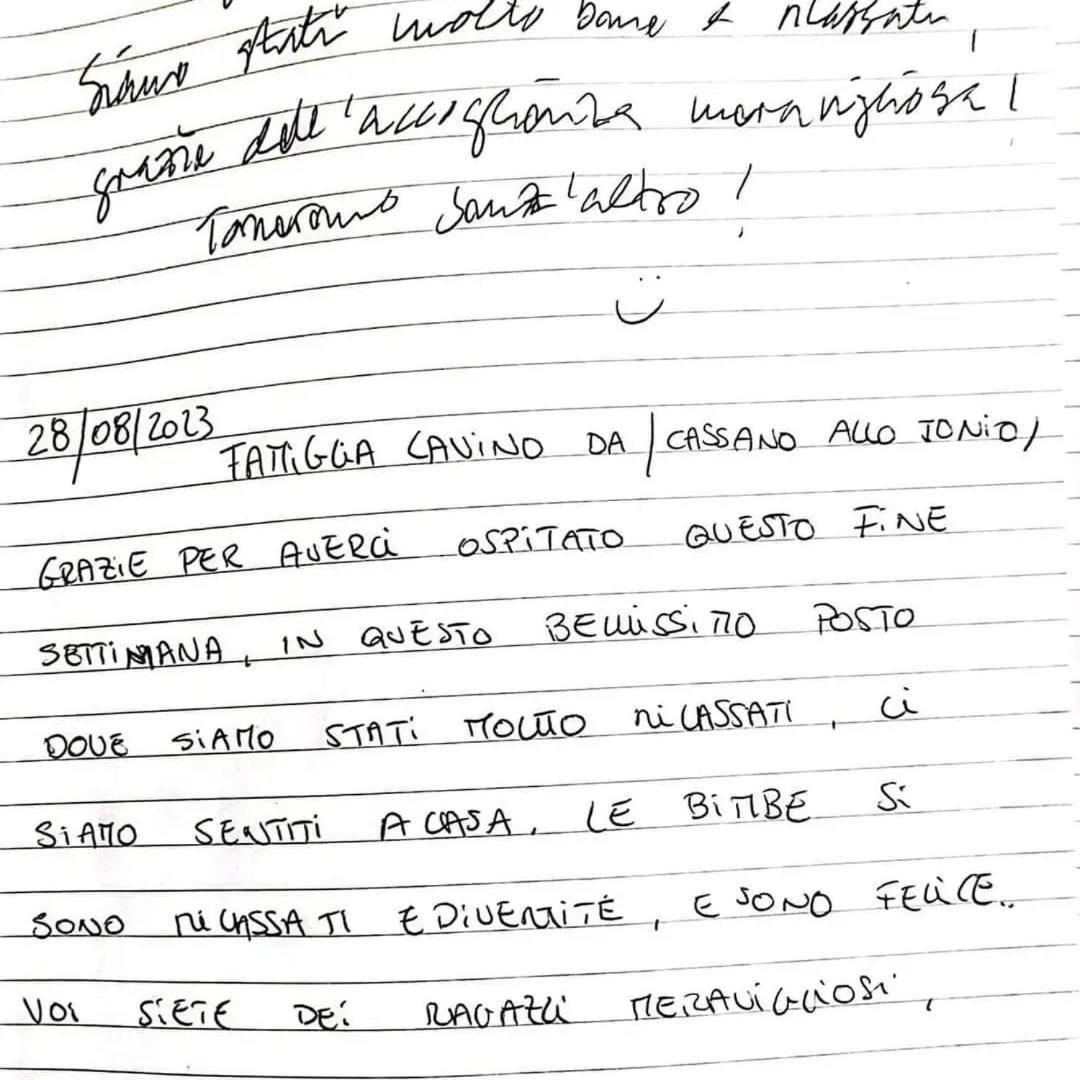 Siamo stati molto bene e rilassati,
grazie dell'accoglienza meravigliosa!
Torneremo senz'altro!
28/08/2023
FAMIGLIA LAVINO DA / CASSANO ALLO IONIO /
GRAZIE PER AVERCI OSPITATO QUESTO FINE
SETTIMANA, IN QUESTO BELLISSIMO POSTO
DOVE SIAMO STATI MOLTO RILASSATI, CI
SIAMO SENTITI A CASA, LE BIMBE SI
SONO RILASSATI E DIVERTITE, E SONO FELICE..
VOI SIETE DEI RAGAZZI MERAVIGLIOSI,